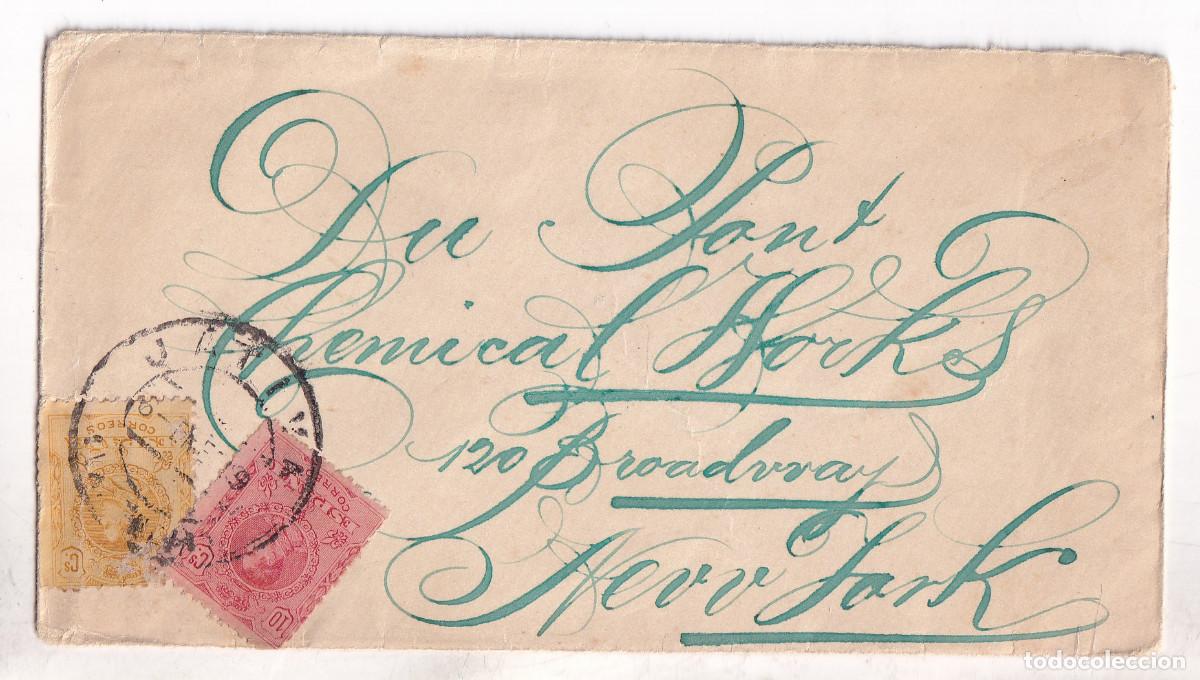 Du Pont
Chemical Works
120 Broadway
New York
JATIVA
CORREOS
CORR
10
Cs
Cs
todocoleccion